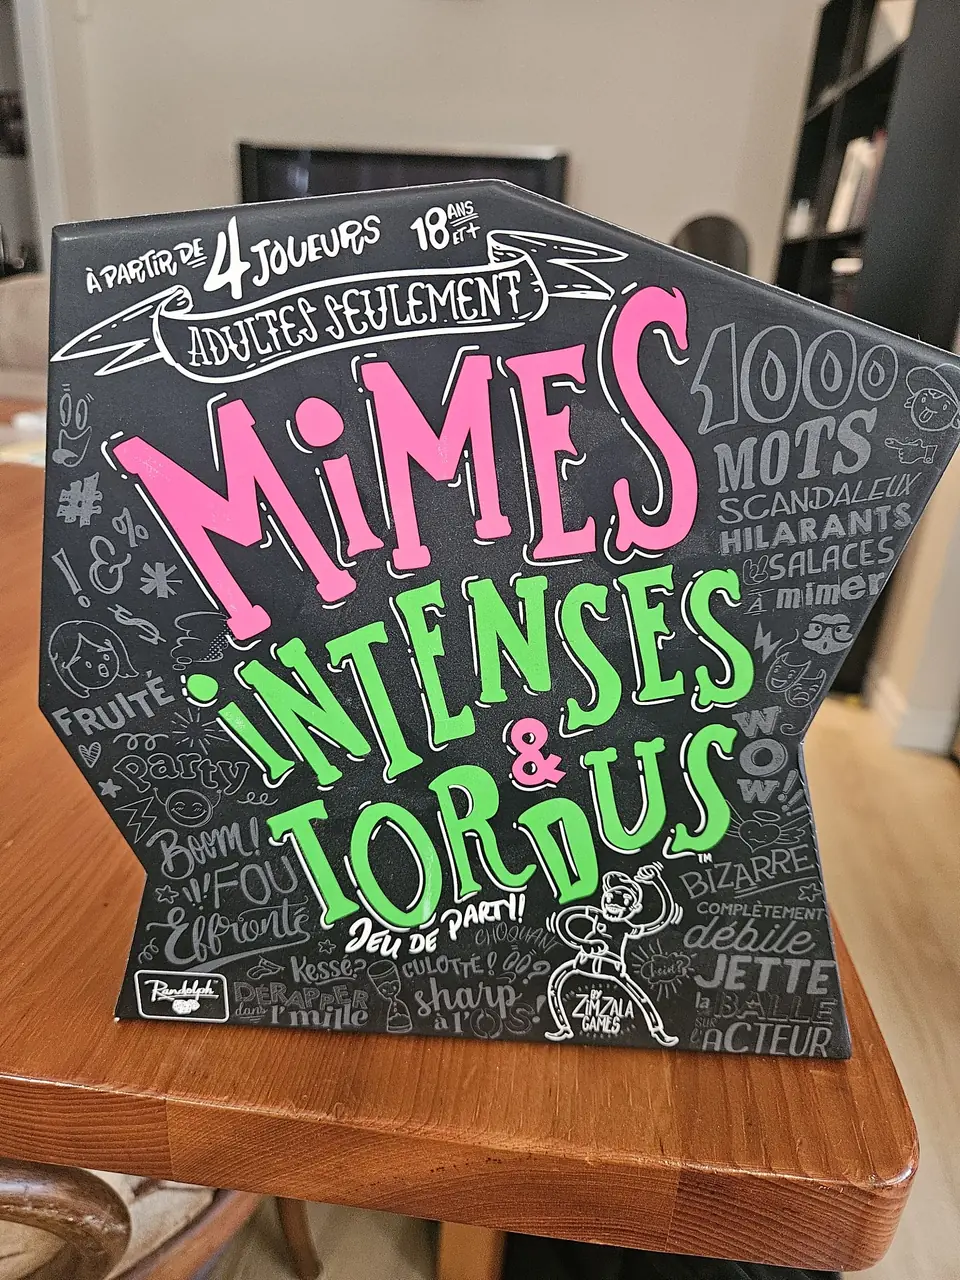 À PARTIR DE 4 JOUEURS
18 ANS ET +
ADULTES SEULEMENT
MiMES
iNTENSES
&
TORDUS™
JEU DE PARTY!
1000
MOTS
SCANDALEUX
HILARANTS
SALACES
À mimer
#
! & % *
$
FRUITÉ
Party
BOOM!
!!! FOU
Effronté
WOW!!
BIZARRE
COMPLÈTEMENT
débile
JETTE
la BALLE
SUR
l'ACTEUR
CHOQUANT
Kessé?
DÉRAPER
dans
l'mille
CULOTTÉ!
?
sharp
à l'OS!
hein?
Randolph
BY
ZiMZALA
GAMES